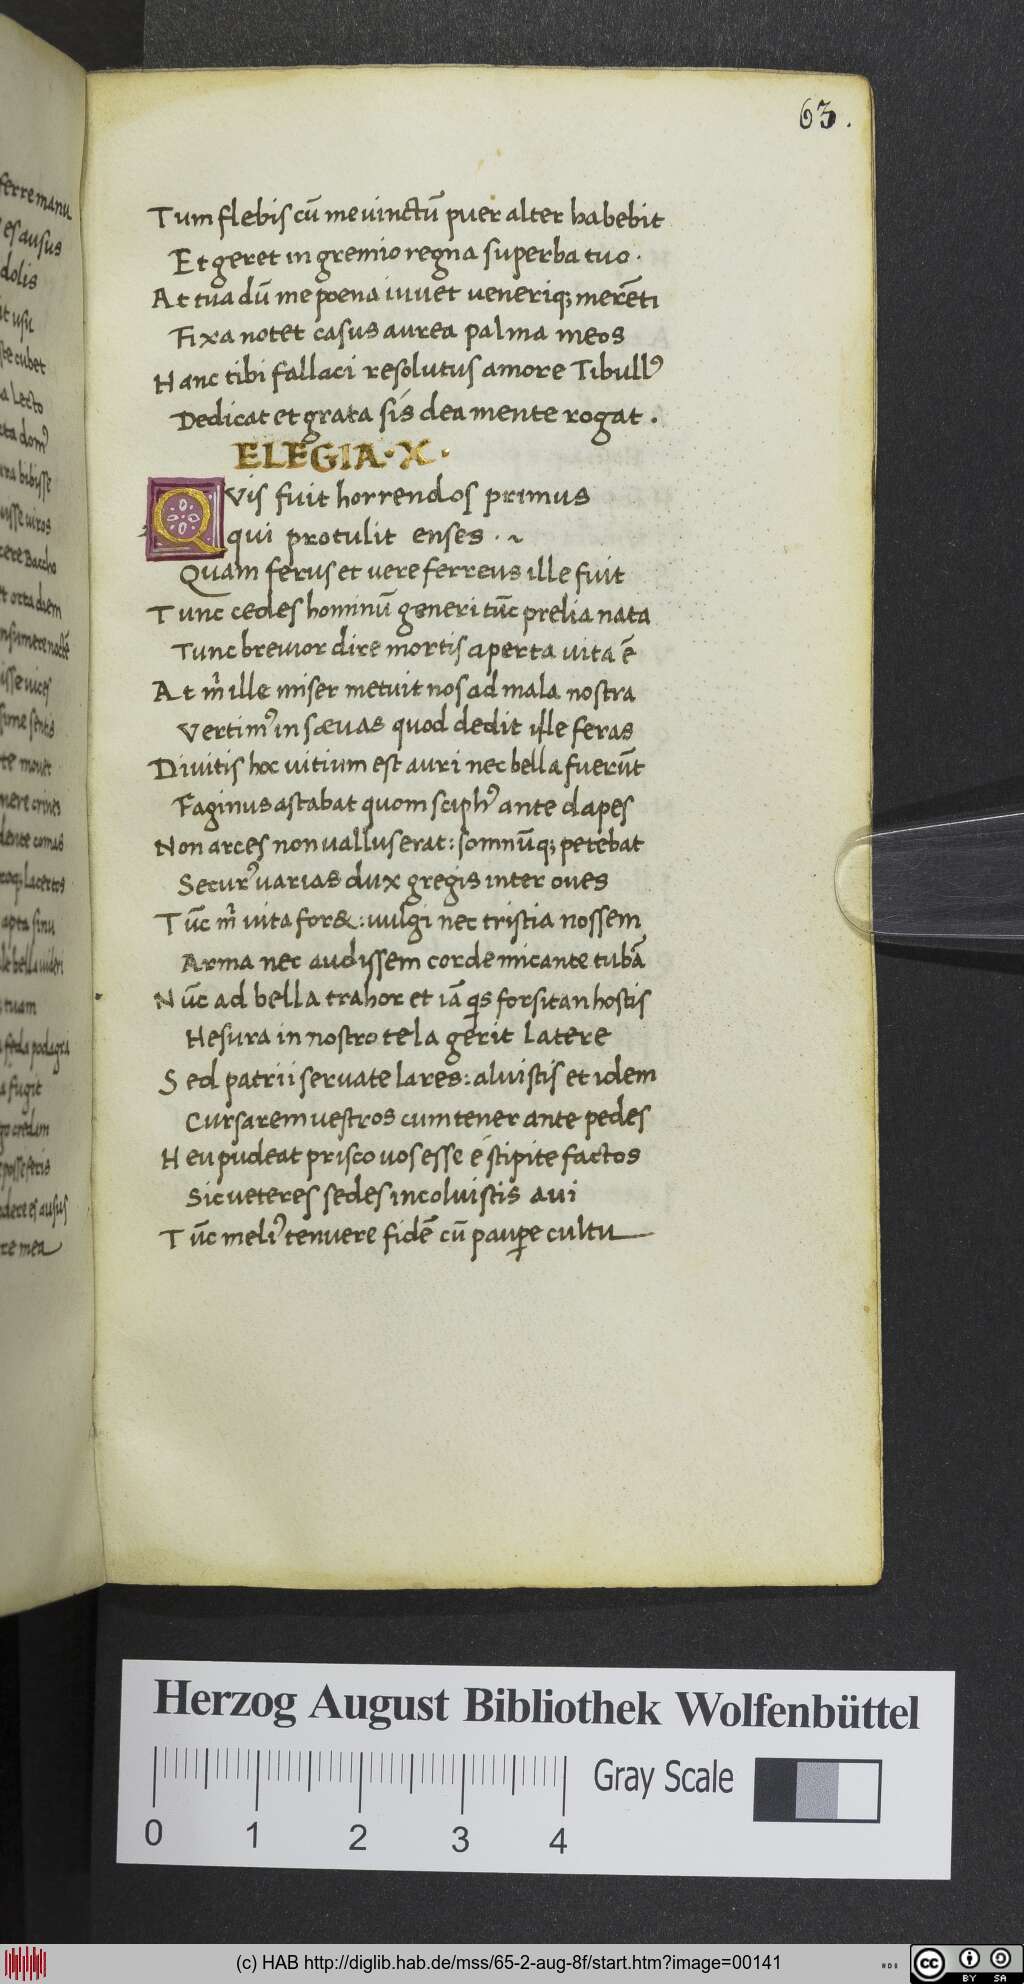 63.
Tum flebis cū me uinctū puer alter habebit
Et geret in gremio regna superba tuo.
At tua dū me poena iuuet uenerique; merēti
Fixa notet casus aurea palma meos
Hanc tibi fallaci resolutus amore Tibullꝰ
Dedicat et grata sis dea mente rogat.
ELEGIA·X·
QVis fuit horrendos primus
qui protulit enses · ~
Quam ferus et uere ferreus ille fuit
Tunc cedes hominū generi tūc prelia nata
Tunc breuior dire mortis aperta uita ē
At m̄ ille miser metuit nos ad mala nostra
Vertimꝰ in sæuas quod dedit ille feras
Diuitis hoc uitium est auri nec bella fuerūt
Faginus astabat quom sciphꝰ ante dapes
Non arces non uallus erat: somnūq; petebat
Securꝰ uarias dux gregis inter oues
Tūc m̄ uita for&: uulgi nec tristia nossem
Arma nec audissem corde micante tubā
Nūc ad bella trahor et iā qs forsitan hostis
Hesura in nostro tela gerit latere
Sed patrii seruate lares: aluistis et idem
Cursarem uestros cum tener ante pedes
Heu pudeat prisco uos esse é stipite factos
Sic ueteres sedes incoluistis aui
Tūc meliꝰ tenuere fidē cū paupe cultu
ferre manu
es ausus
dolis
cubet
Lecto
domꝰ
bibisse
uiros
Baccho
orta diem
uices
sentis
mouet
crines
comas
lacertos
apta sinu
tuam
podagra
fugit
credim
posse feris
es ausus
mea
Herzog August Bibliothek Wolfenbüttel
Gray Scale
0 1 2 3 4
(c) HAB http://diglib.hab.de/mss/65-2-aug-8f/start.htm?image=00141
HAB
cc BY SA